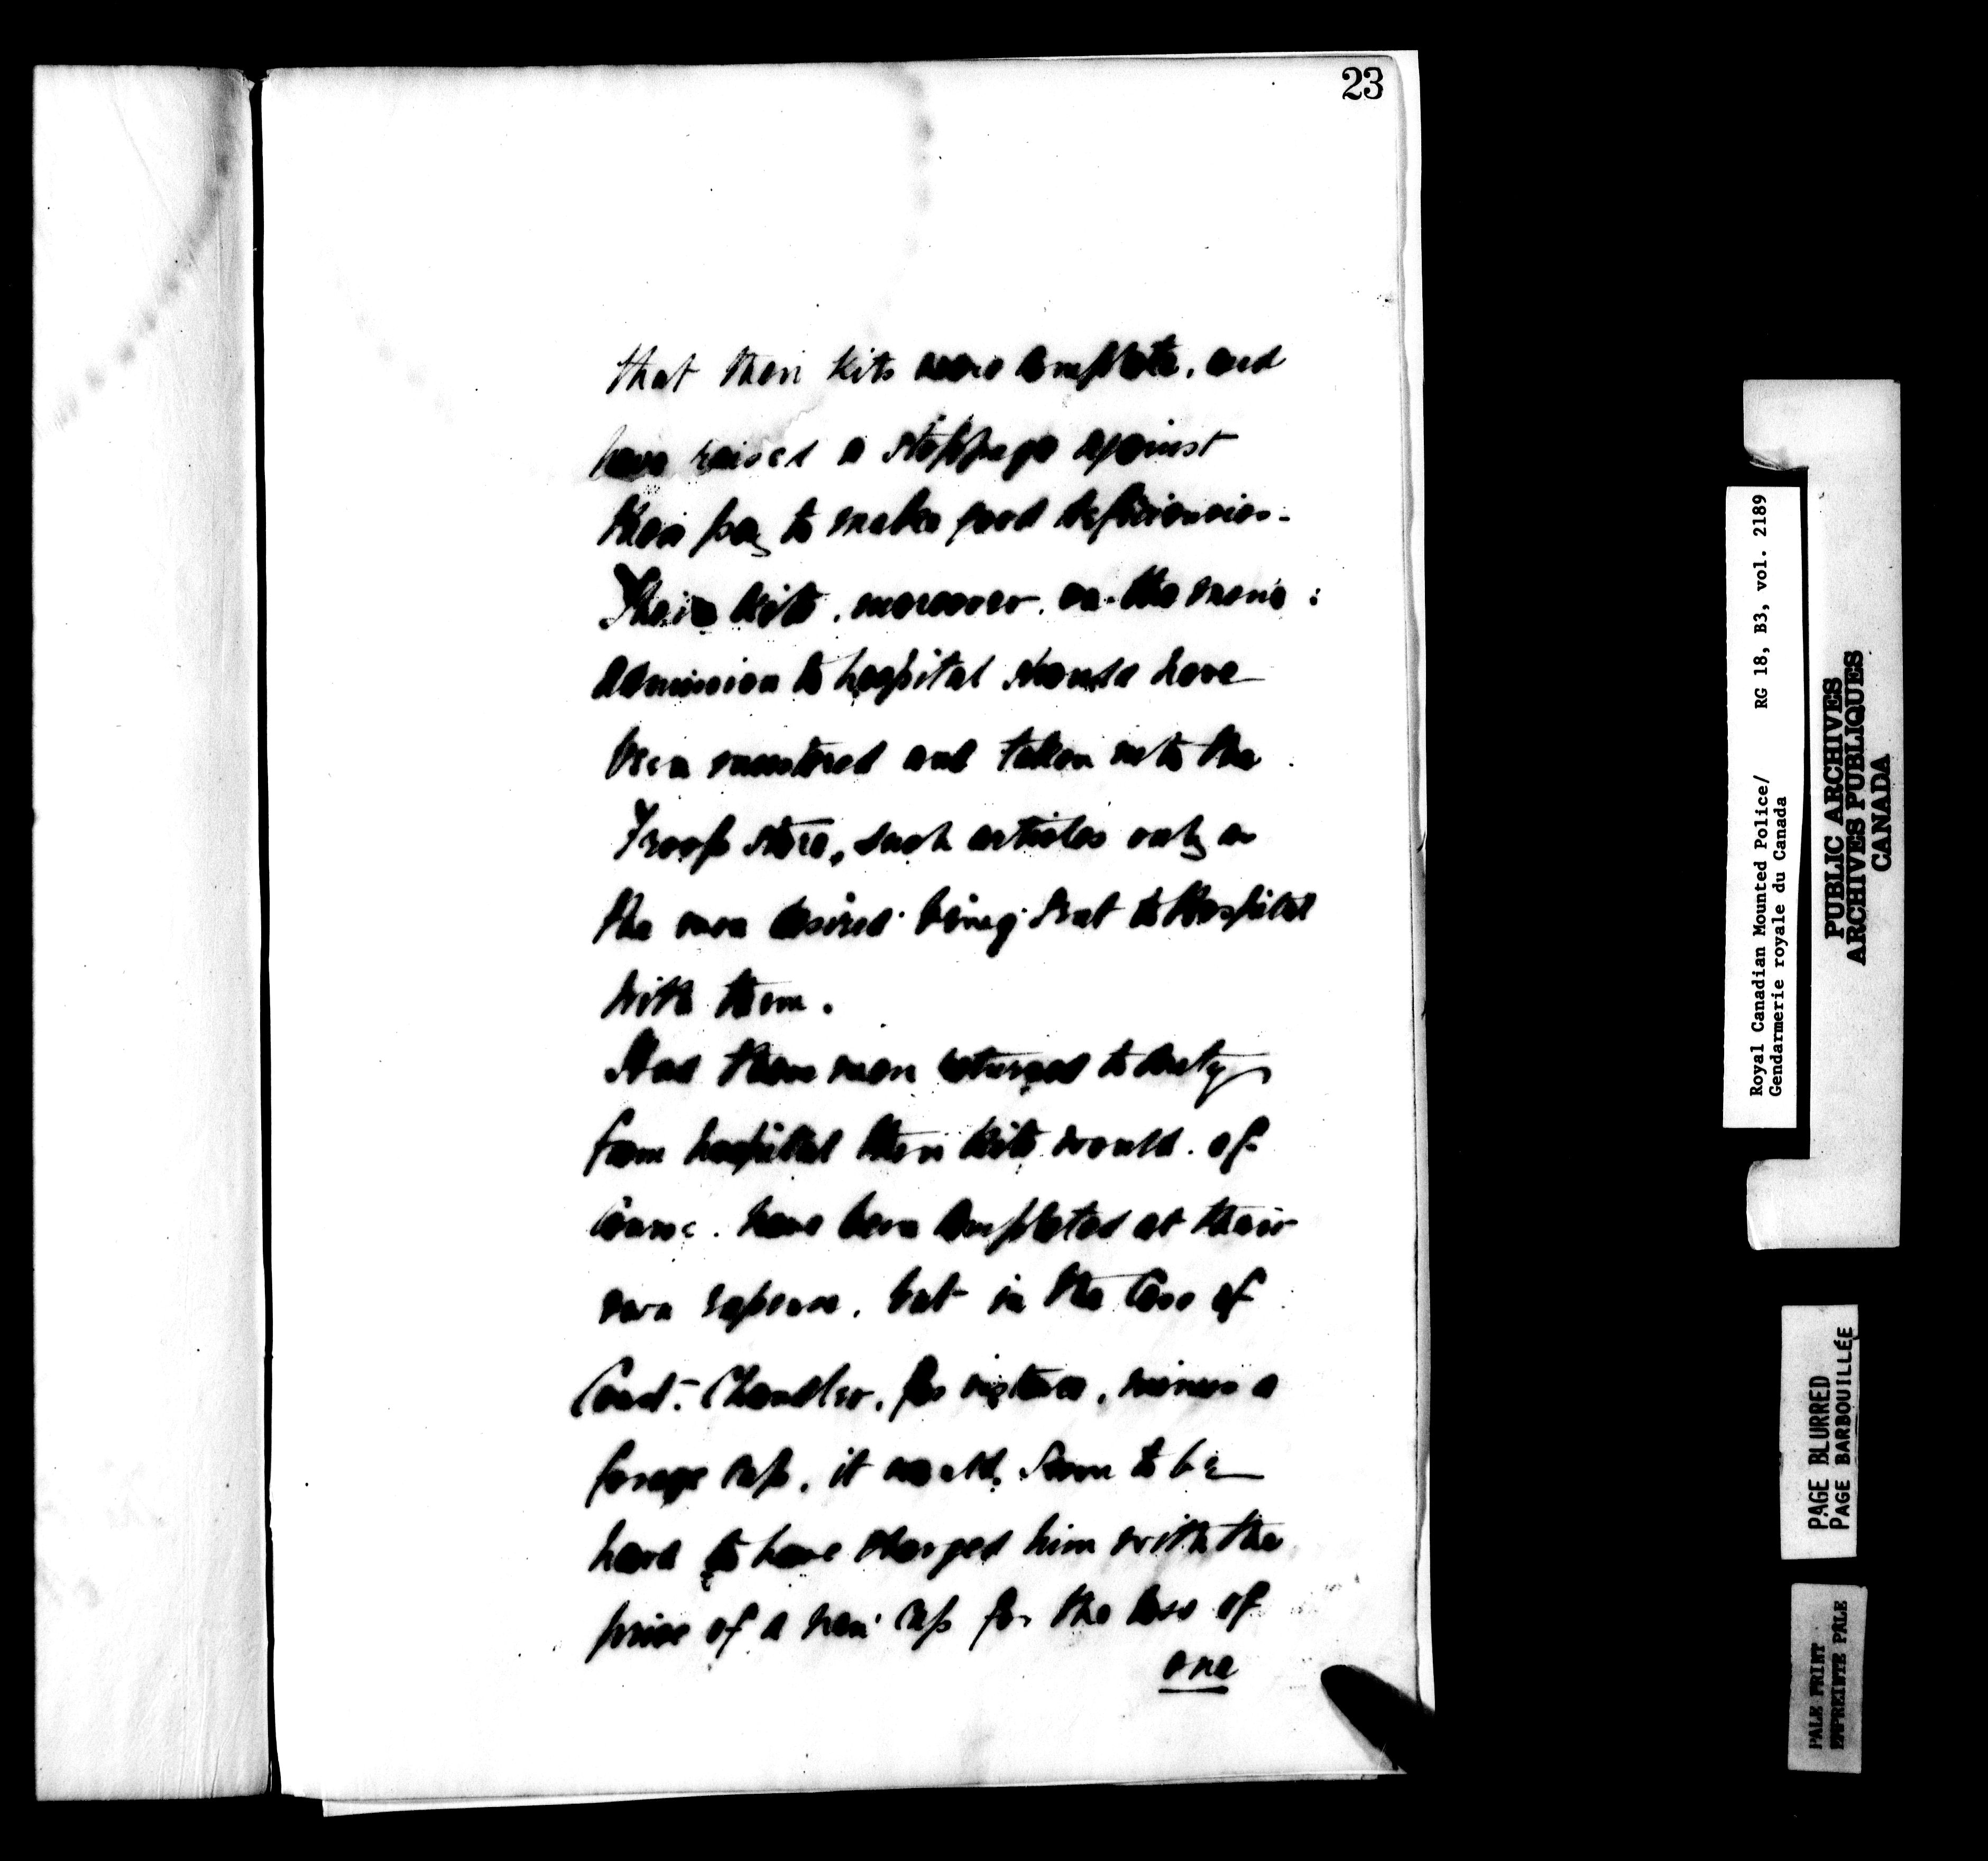 23
that their kits were complete, and
have raised a stoppage against
their pay to make good deficiencies.
Their kits, moreover, on the men's
admission to hospital should have
been mustered and taken into the
Troop store, such articles only as
the men desired being sent to Hospital
with them.
Had these men returned to duty
from hospital their kits would, of
course, have been completed at their
own expense, but in the case of
Const. Chandler, for instance, minus a
forage cap, it would seem to be
hard to have charged him with the
price of a new cap for the loss of
one
Royal Canadian Mounted Police/ RG 18, B3, vol. 2189
Gendarmerie royale du Canada
PUBLIC ARCHIVES
ARCHIVES PUBLIQUES
CANADA
PAGE BLURRED
PAGE BARBOUILLÉE
PALE PRINT
EMPREINTE PÂLE